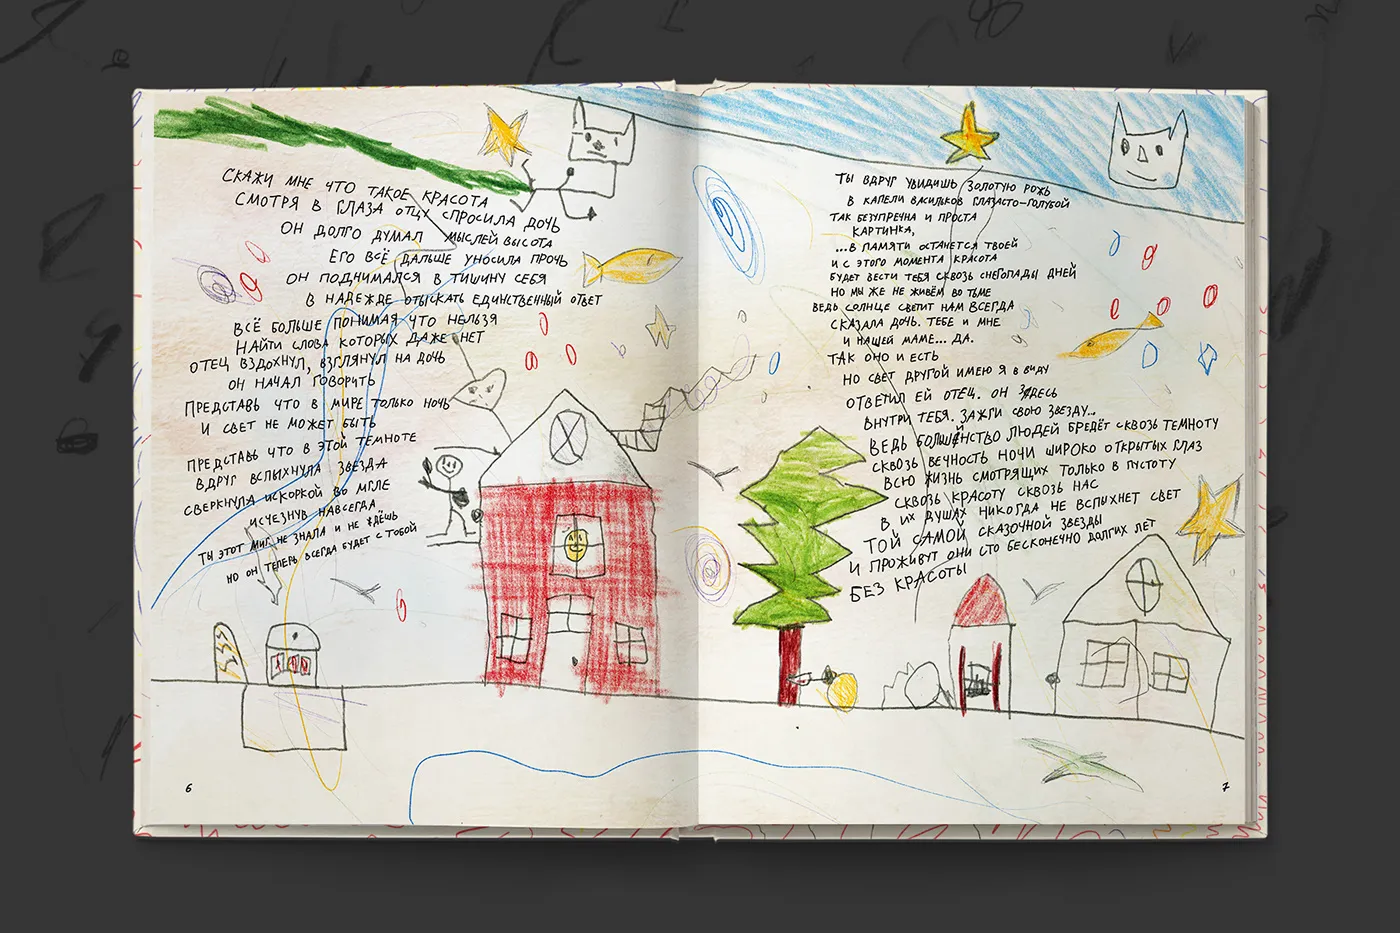 СКАЖИ МНЕ ЧТО ТАКОЕ КРАСОТА
СМОТРЯ В ГЛАЗА ОТЦУ СПРОСИЛА ДОЧЬ
ОН ДОЛГО ДУМАЛ МЫСЛЕЙ ВЫСОТА
ЕГО ВСЁ ДАЛЬШЕ УНОСИЛА ПРОЧЬ
ОН ПОДНИМАЛСЯ В ТИШИНУ СЕБЯ
В НАДЕЖДЕ ОТЫСКАТЬ ЕДИНСТВЕННЫЙ ОТВЕТ
ВСЁ БОЛЬШЕ ПОНИМАЯ ЧТО НЕЛЬЗЯ
НАЙТИ СЛОВА КОТОРЫХ ДАЖЕ НЕТ
ОТЕЦ ВЗДОХНУЛ, ВЗГЛЯНУЛ НА ДОЧЬ
ОН НАЧАЛ ГОВОРИТЬ
ПРЕДСТАВЬ ЧТО В МИРЕ ТОЛЬКО НОЧЬ
И СВЕТ НЕ МОЖЕТ БЫТЬ
ПРЕДСТАВЬ ЧТО В ЭТОЙ ТЕМНОТЕ
ВДРУГ ВСПЫХНУЛА ЗВЕЗДА
СВЕРКНУЛА ИСКОРКОЙ ВО МГЛЕ
ИСЧЕЗНУВ НАВСЕГДА
ТЫ ЭТОТ МИГ НЕ ЗНАЛА И НЕ ЖДЁШЬ
НО ОН ТЕПЕРЬ ВСЕГДА БУДЕТ С ТОБОЙ
6
ТЫ ВДРУГ УВИДИШЬ ЗОЛОТУЮ РОЖЬ
В КАПЕЛИ ВАСИЛЬКОВ ГЛАЗАСТО-ГОЛУБОЙ
ТАК БЕЗУПРЕЧНА И ПРОСТА
КАРТИНКА,
...В ПАМЯТИ ОСТАНЕТСЯ ТВОЕЙ
И С ЭТОГО МОМЕНТА КРАСОТА
БУДЕТ ВЕСТИ ТЕБЯ СКВОЗЬ СНЕГОПАДЫ ДНЕЙ
НО МЫ ЖЕ НЕ ЖИВЁМ ВО ТЬМЕ
ВЕДЬ СОЛНЦЕ СВЕТИТ НАМ ВСЕГДА
СКАЗАЛА ДОЧЬ. ТЕБЕ И МНЕ
И НАШЕЙ МАМЕ... ДА.
ТАК ОНО И ЕСТЬ
НО СВЕТ ДРУГОЙ ИМЕЮ Я В ВИДУ
ОТВЕТИЛ ЕЙ ОТЕЦ. ОН ЗДЕСЬ
ВНУТРИ ТЕБЯ. ЗАЖГИ СВОЮ ЗВЕЗДУ...
ВЕДЬ БОЛЬШИНСТВО ЛЮДЕЙ БРЕДЁТ СКВОЗЬ ТЕМНОТУ
СКВОЗЬ ВЕЧНОСТЬ НОЧИ ШИРОКО ОТКРЫТЫХ ГЛАЗ
ВСЮ ЖИЗНЬ СМОТРЯЩИХ ТОЛЬКО В ПУСТОТУ
СКВОЗЬ КРАСОТУ СКВОЗЬ НАС
В ИХ ДУШАХ НИКОГДА НЕ ВСПЫХНЕТ СВЕТ
ТОЙ САМОЙ СКАЗОЧНОЙ ЗВЕЗДЫ
И ПРОЖИВУТ ОНИ СТО БЕСКОНЕЧНО ДОЛГИХ ЛЕТ
БЕЗ КРАСОТЫ
7